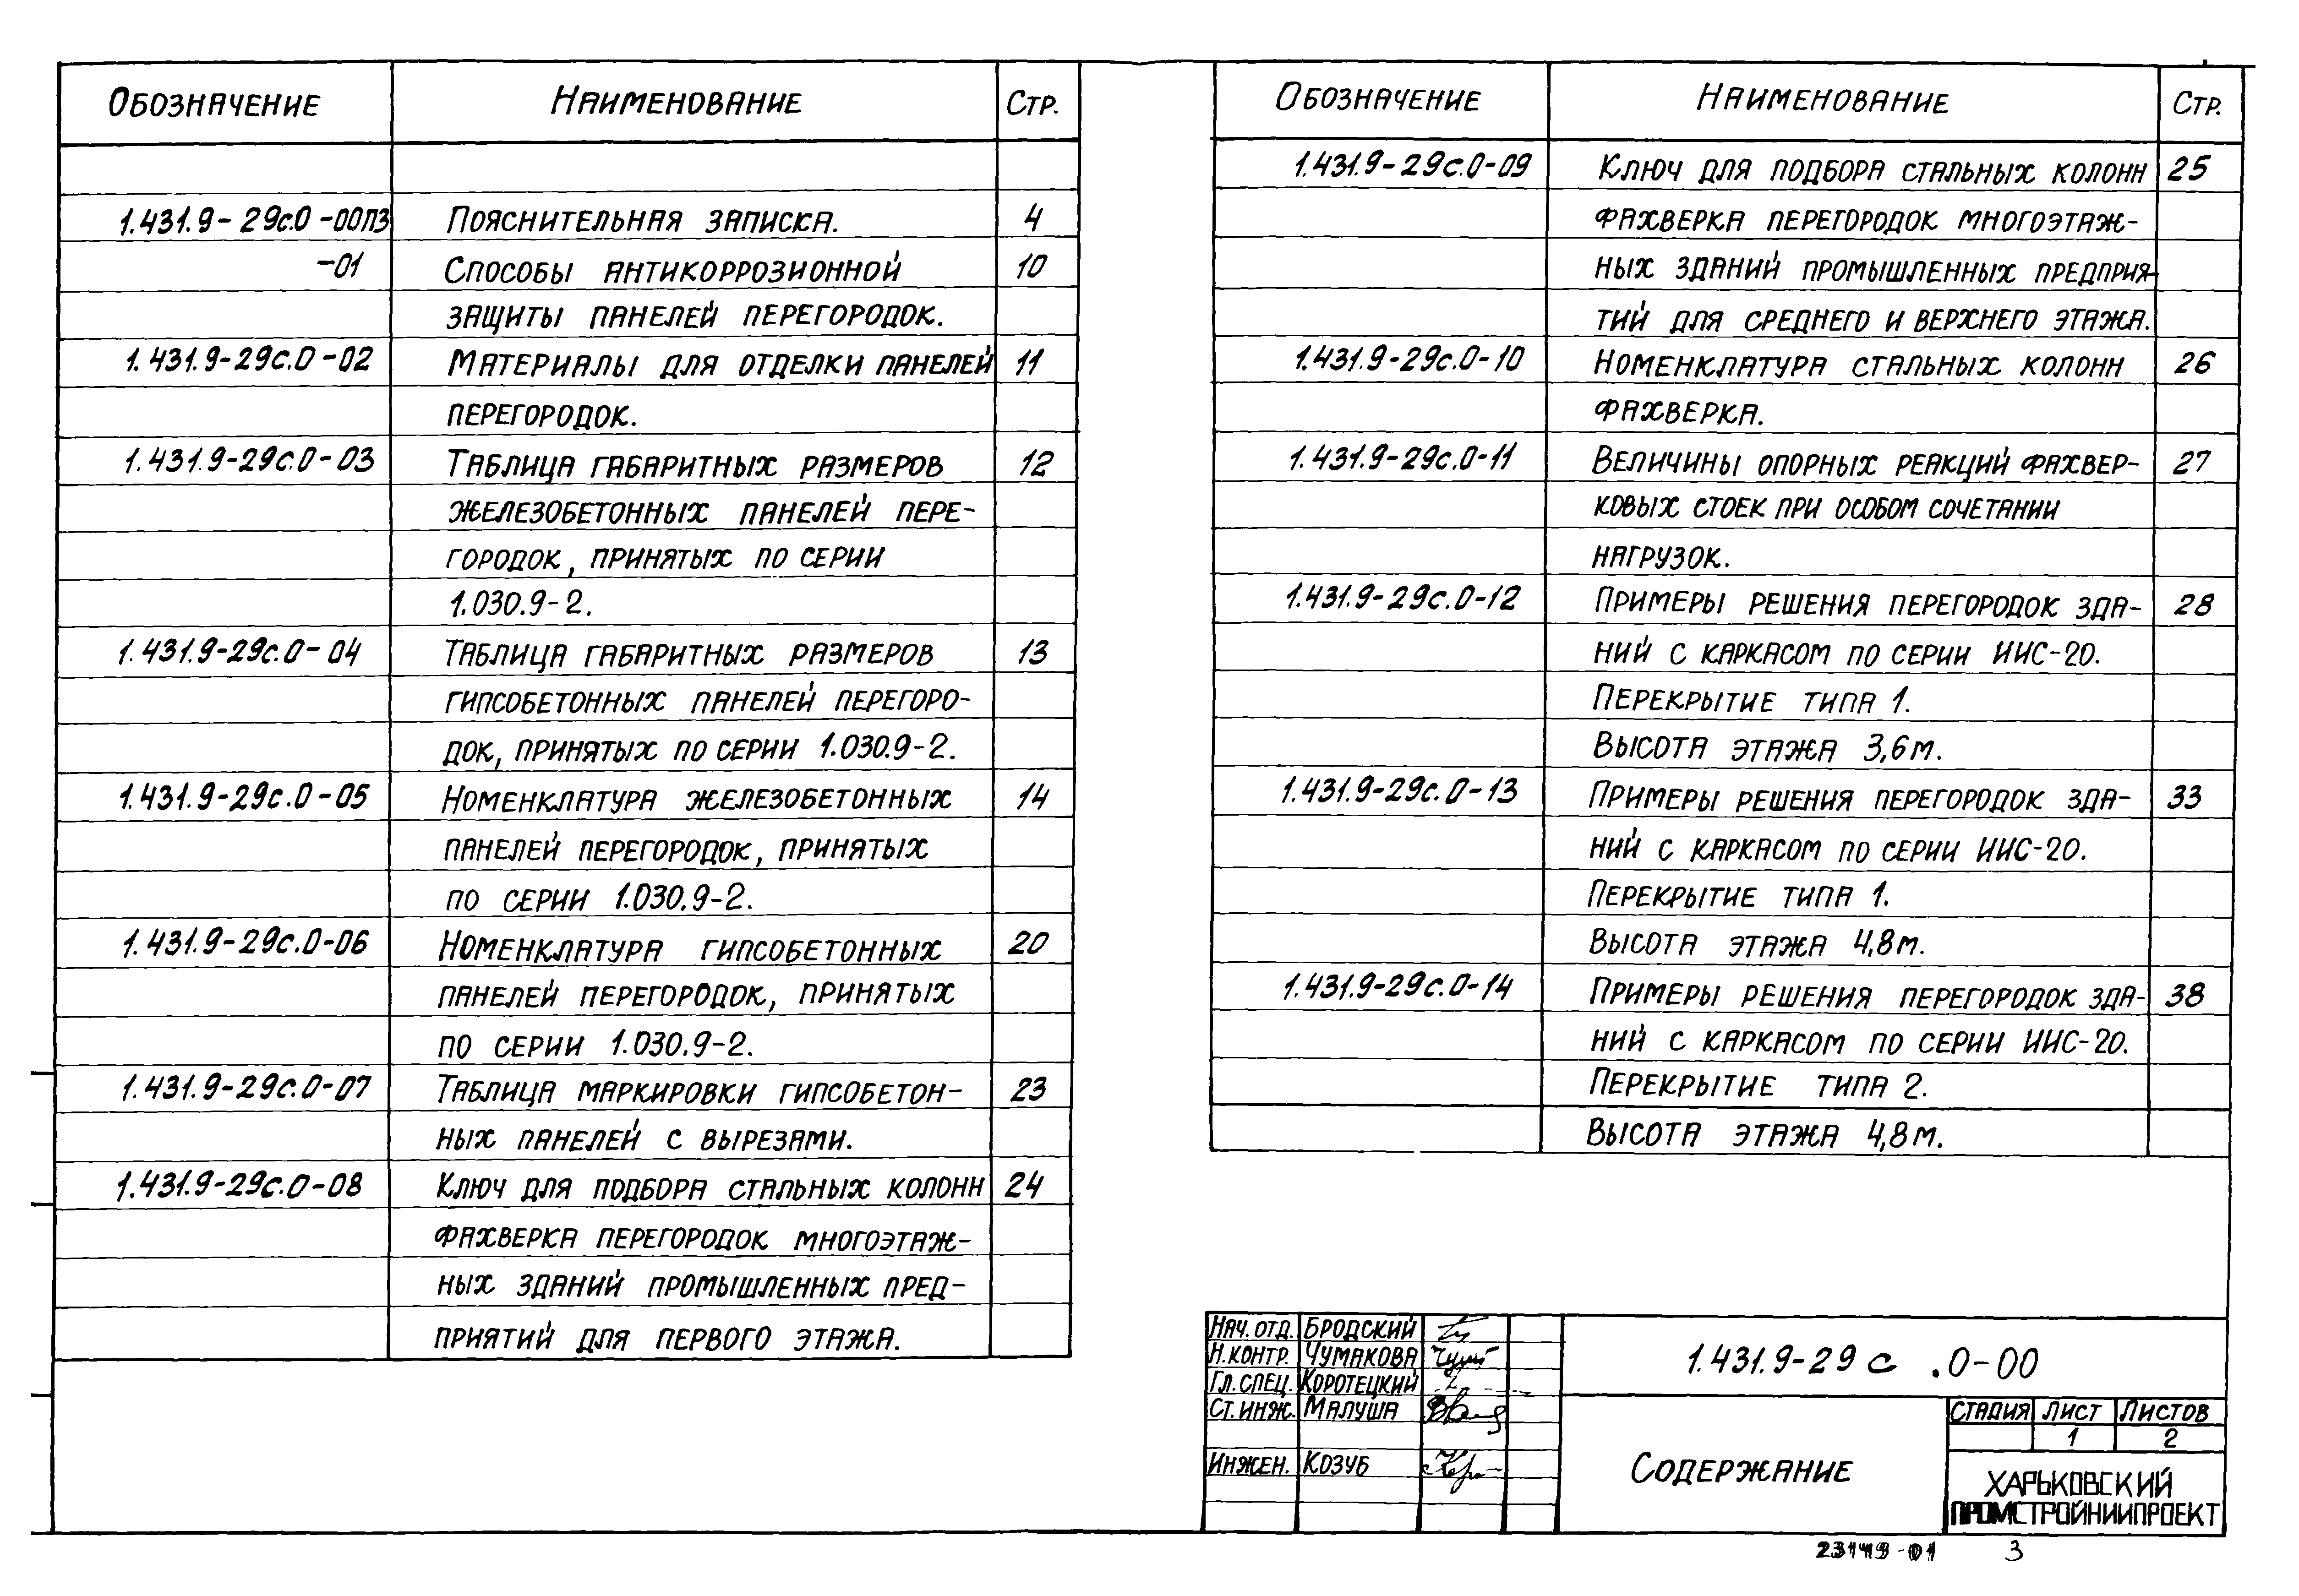 Обозначение Наименование Стр.
1.431.9-29с.0-00ПЗ Пояснительная записка. 4
-01 Способы антикоррозионной 10
защиты панелей перегородок.
1.431.9-29с.0-02 Материалы для отделки панелей 11
перегородок.
1.431.9-29с.0-03 Таблица габаритных размеров 12
железобетонных панелей пере-
городок, принятых по серии
1.030.9-2.
1.431.9-29с.0-04 Таблица габаритных размеров 13
гипсобетонных панелей перегоро-
док, принятых по серии 1.030.9-2.
1.431.9-29с.0-05 Номенклатура железобетонных 14
панелей перегородок, принятых
по серии 1.030.9-2.
1.431.9-29с.0-06 Номенклатура гипсобетонных 20
панелей перегородок, принятых
по серии 1.030.9-2.
1.431.9-29с.0-07 Таблица маркировки гипсобетон- 23
ных панелей с вырезами.
1.431.9-29с.0-08 Ключ для подбора стальных колонн 24
фахверка перегородок многоэтаж-
ных зданий промышленных пред-
приятий для первого этажа.
Обозначение Наименование Стр.
1.431.9-29с.0-09 Ключ для подбора стальных колонн 25
фахверка перегородок многоэтаж-
ных зданий промышленных предприя-
тий для среднего и верхнего этажа.
1.431.9-29с.0-10 Номенклатура стальных колонн 26
фахверка.
1.431.9-29с.0-11 Величины опорных реакций фахвер- 27
ковых стоек при особом сочетании
нагрузок.
1.431.9-29с.0-12 Примеры решения перегородок зда- 28
ний с каркасом по серии ИИС-20.
Перекрытие типа 1.
Высота этажа 3,6м.
1.431.9-29с.0-13 Примеры решения перегородок зда- 33
ний с каркасом по серии ИИС-20.
Перекрытие типа 1.
Высота этажа 4,8м.
1.431.9-29с.0-14 Примеры решения перегородок зда- 38
ний с каркасом по серии ИИС-20.
Перекрытие типа 2.
Высота этажа 4,8м.
Нач. отд. Бродский
Н.контр. Чумакова
Гл. спец. Коротецкий
Ст. инж. Малуша
Инжен. Козуб
1.431.9-29с .0-00
Содержание
Стадия Лист Листов
1 2
ХАРЬКОВСКИЙ
ПРОМСТРОЙНИИПРОЕКТ
23149-01 3